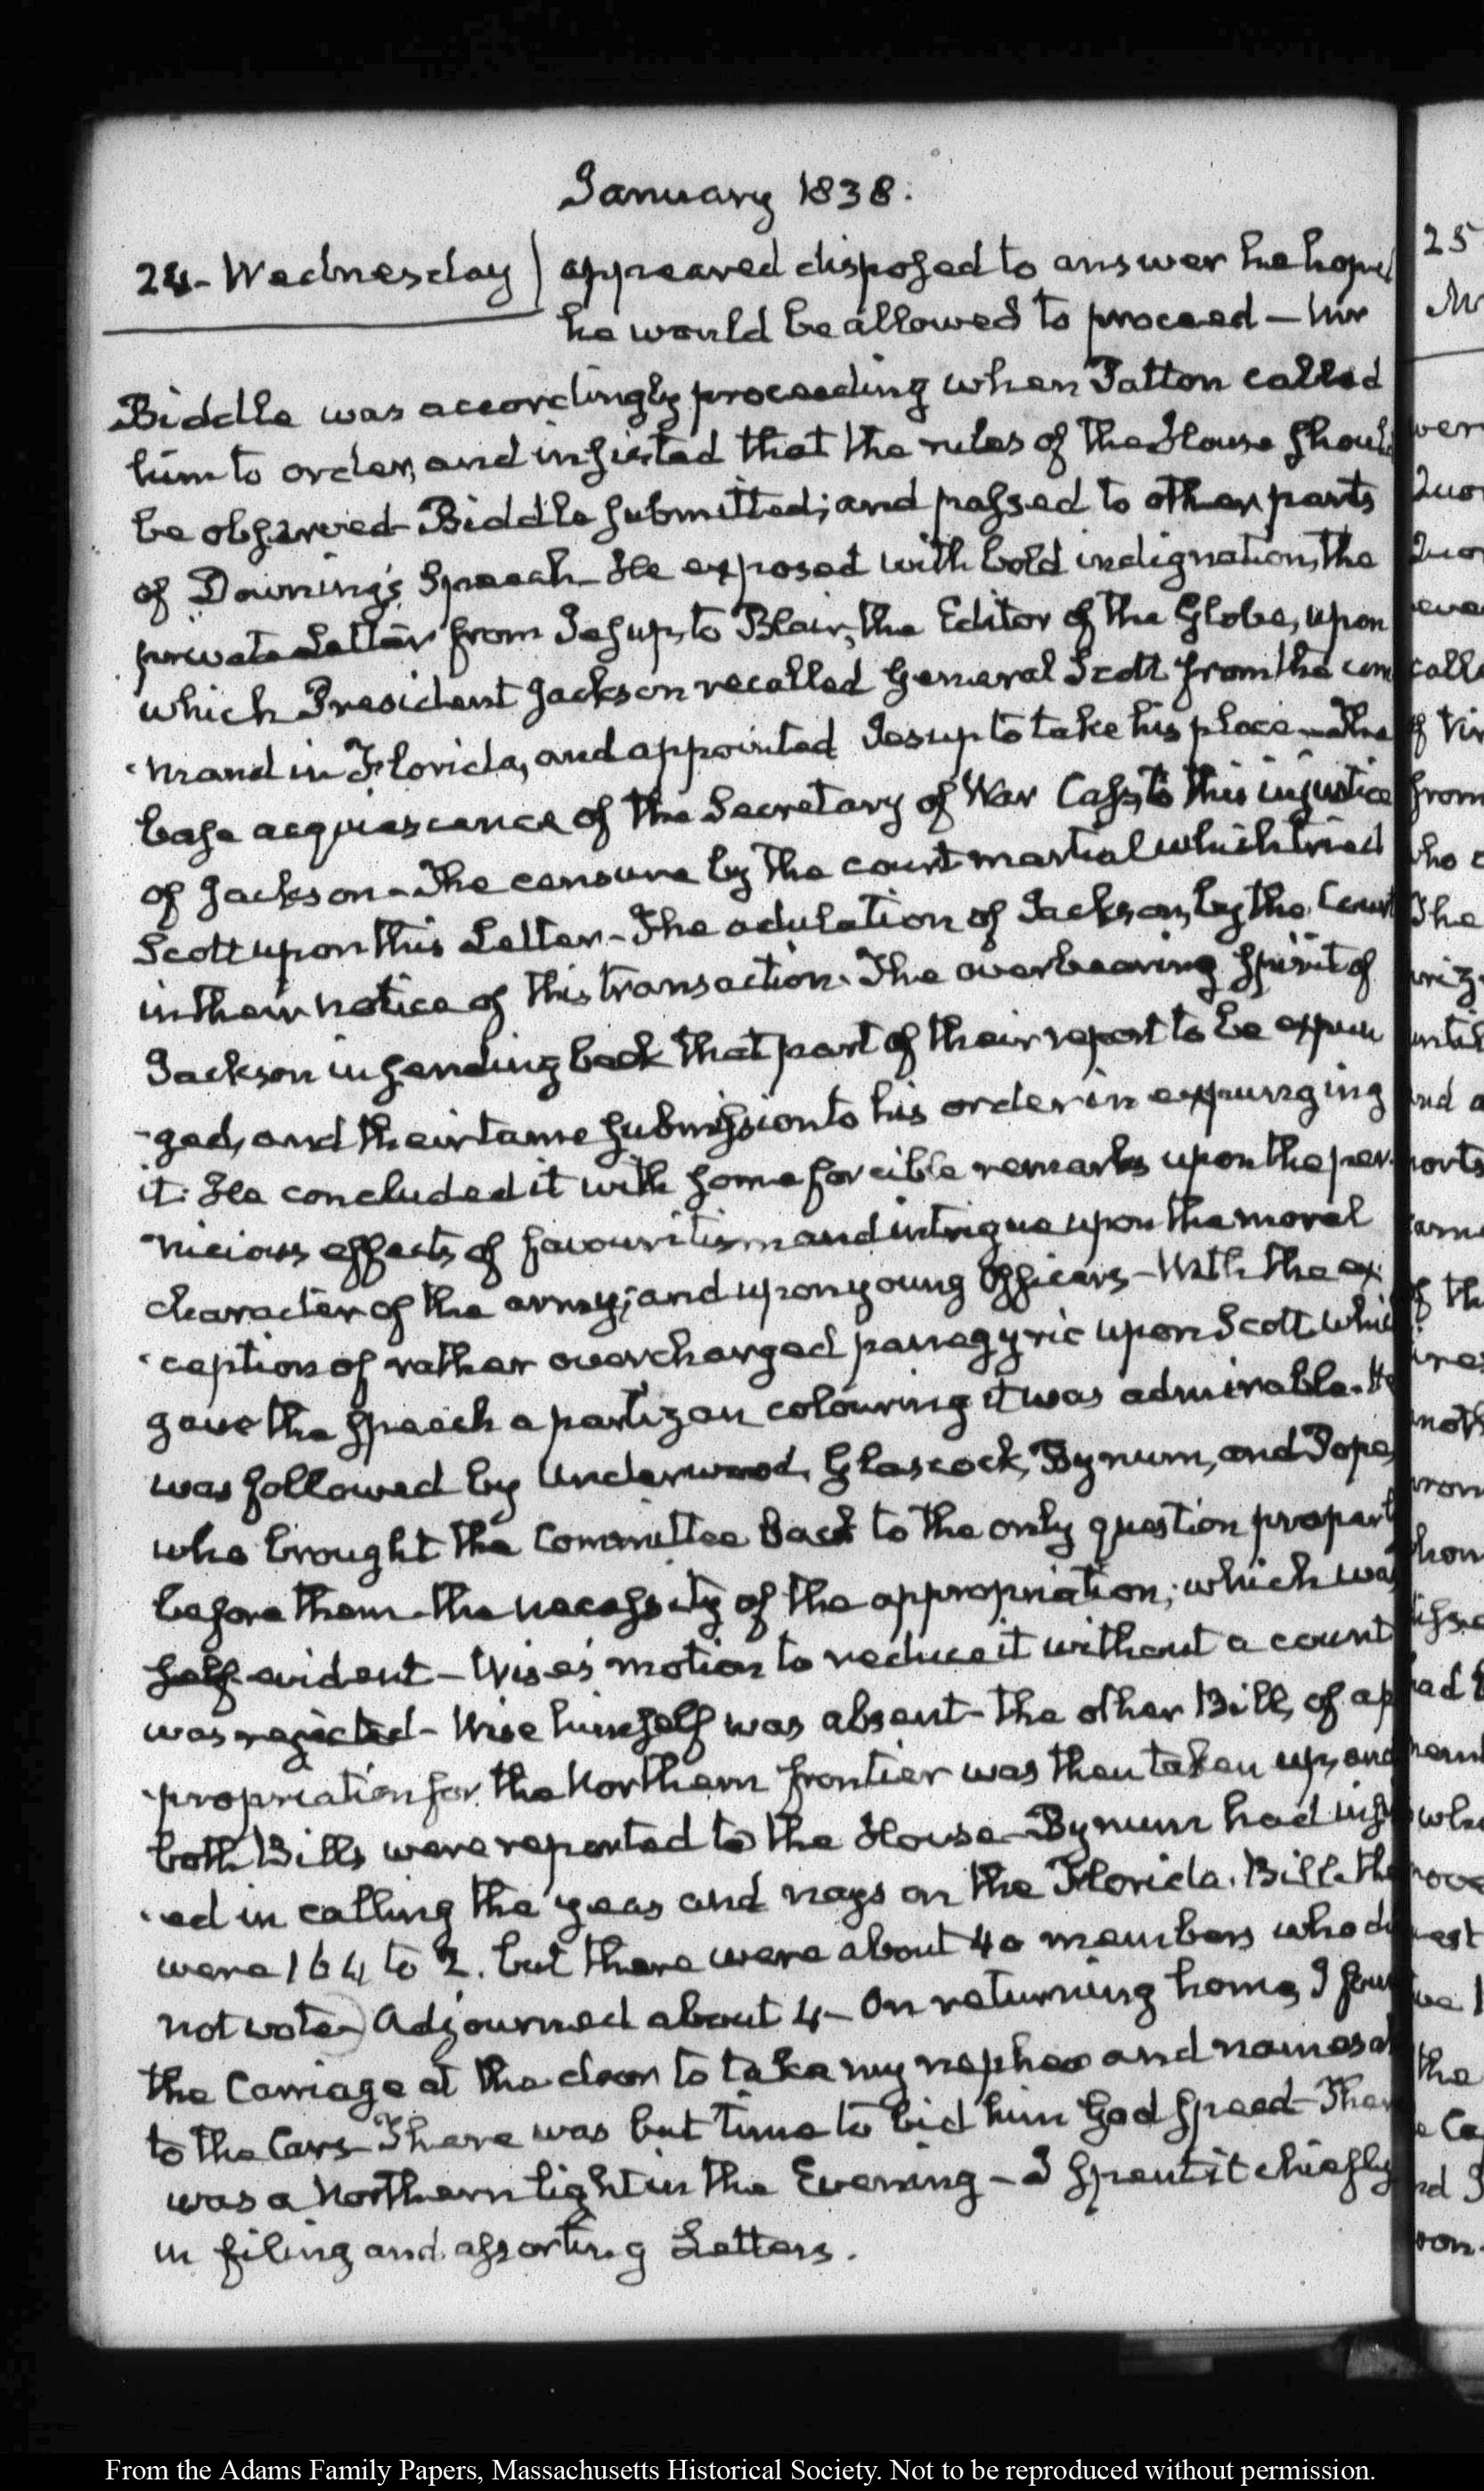 January 1838.
24- Wednesday) appeared disposed to answer he hoped
he would be allowed to proceed — Mr
Biddle was accordingly proceeding when Patton called
him to order, and insisted that the rules of the House shoul
be observed- Biddle submitted; and passed to other parts
of Downing's Speech- He exposed with bold indignation, the
private Letter from Jesup, to Blair, the Editor of the Globe, upon
which President Jackson recalled General Scott from the com
-mand in Florida, and appointed Jesup to take his place - The
base acquiescence of the Secretary of War Cass, to this injustice
of Jackson - The censure by the court martial which tried
Scott upon this Letter - The adulation of Jackson, by the Court
in their notice of this transaction. The overbearing spirit of
Jackson in sending back that part of their report to be expun
-ged, and their tame submission to his order in expunging
it. He concluded it with some forcible remarks upon the per-
nicious effects of favouritism and intrigue upon the moral
character of the army; and upon young Officers - With the ex-
-ception of rather overcharged panegyric upon Scott whic
gave the speech a partizan colouring it was admirable. He
was followed by Underwood, Glascock, Bynum, and Pope,
who brought the Committee back to the only question properl
before them - the necessity of the appropriation; which was
self-evident - Wise's motion to reduce it without a count
was rejected - Wise himself was absent - the other Bill, of ap
-propriation for the Northern frontier was then taken up, and
both Bills were reported to the House - Bynum had insi
-ed in calling the yeas and nays on the Florida Bill- the
were 164 to 2. but there were about 40 members who di
not vote-) Adjourned about 4- On returning home, I foun
the Carriage at the door to take my nephew and namesa
to the Cars- There was but time to bid him God speed- Ther
was a Northern light in the Evening - I spent it chiefly
in filing and assorting Letters.
25
Mr
From the Adams Family Papers, Massachusetts Historical Society. Not to be reproduced without permission.